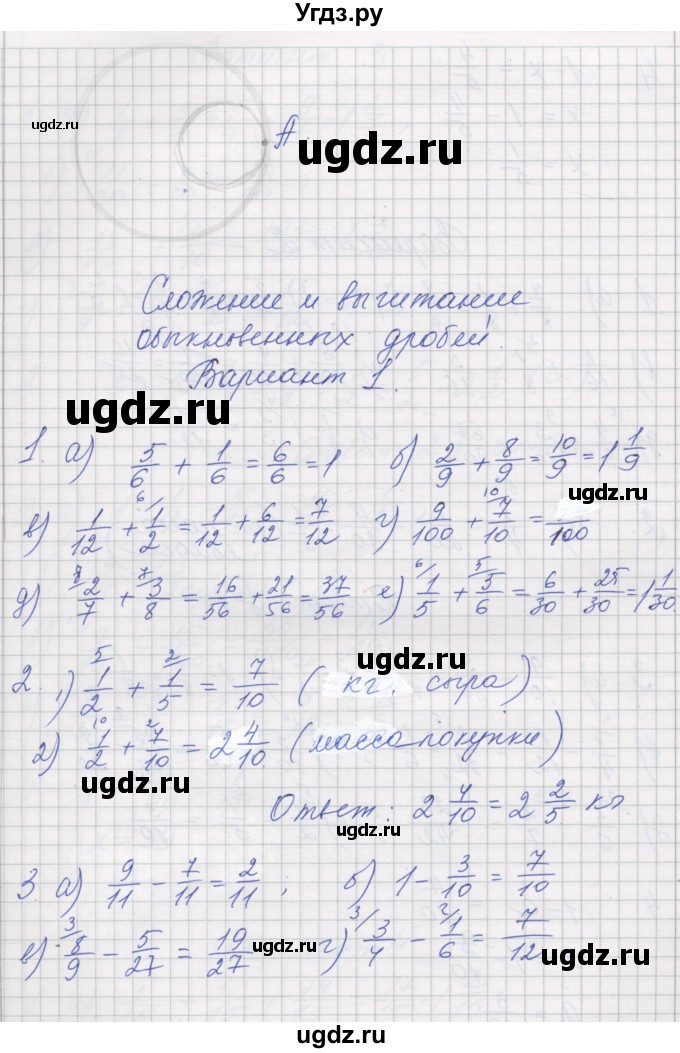 Угдз.ру
ugdz.ru
A
ugdz.ru
Сложение и вычитание
обыкновенных дробей.
Вариант 1.
ugdz.ru
1. а) 5/6 + 1/6 = 6/6 = 1 б) 2/9 + 8/9 = 10/9 = 1 1/9
ugdz.ru
в) 1/12 + 6/ 1/2 = 1/12 + 6/12 = 7/12 г) 9/100 + 10/ 7/10 = /100
д) 8/ 2/7 + 7/ 3/8 = 16/56 + 21/56 = 37/56 е) 6/ 1/5 + 5/ 5/6 = 6/30 + 25/30 = 1 1/30
2. 1) 5/ 1/2 + 2/ 1/5 = 7/10 (кг. сыра)
2) 10/ 1/2 + 2/ 7/10 = 2 4/10 (масса покупки)
Ответ: 2 4/10 = 2 2/5 кг.
ugdz.ru
3. а) 9/11 - 7/11 = 2/11, б) 1 - 3/10 = 7/10
в) 3/ 8/9 - 5/27 = 19/27 г) 3/ 3/4 - 2/ 1/6 = 7/12
ugdz.ru
ugdz.ru
ugdz.ru